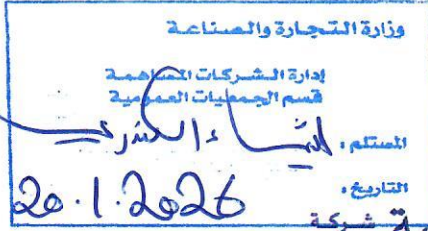 وزارة التجارة والصناعة
إدارة الشركات المساهمة
قسم الجمعيات العمومية
المستلم :
التاريخ : 20.1.2026
شركة